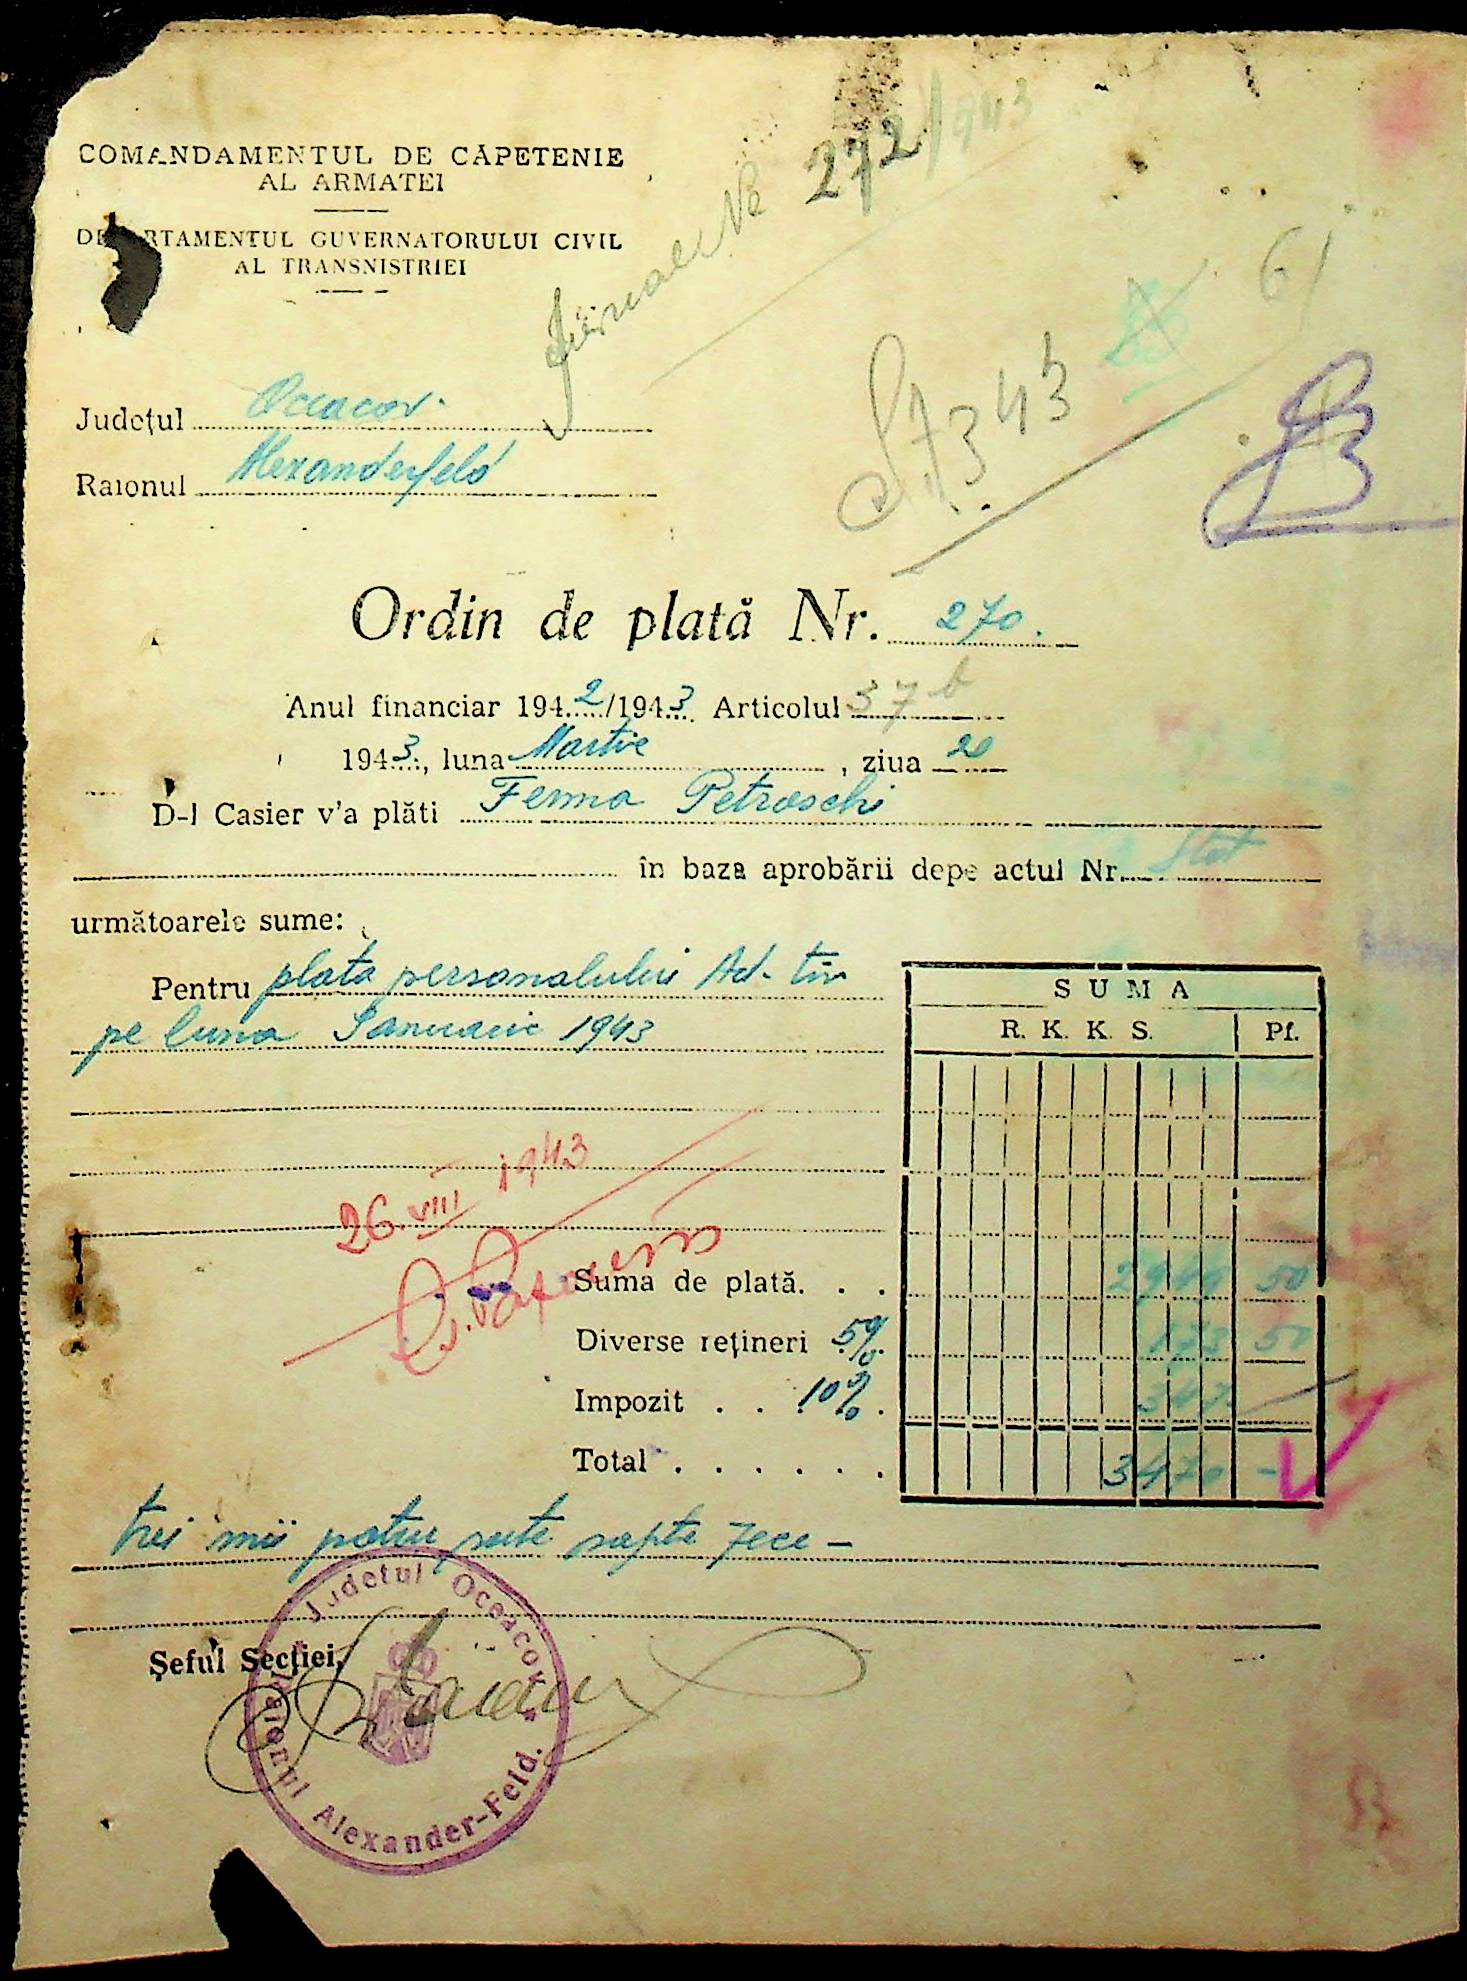 COMANDAMENTUL DE CAPETENIE
AL ARMATEI
DEPARTAMENTUL GUVERNATORULUI CIVIL
AL TRANSNISTRIEI
Jurnal No 272/943
61
5343
Județul Oceacov.
Raionul Alexanderfeld
Ordin de plată Nr. 270.
Anul financiar 1942/1943 Articolul 37 b
1943, luna Martie, ziua 20
D-l Casier v'a plăti Ferma Petroschi
în baza aprobării depe actul Nr. Stat
următoarele sume:
Pentru plata personalului Ad-tiv
pe luna Ianuarie 1943
SUMA
R. K. K. S. Pf.
26. VIII 1943
Suma de plată. . . 2949 50
Diverse rețineri 5% 173 50
Impozit . . 10% . 347 -
Total . . . . . . 3470 -
trei mii patru sute sapte zeci -
Șeful Secției,
Judetul Oceacov * Raionul Alexander-Feld.